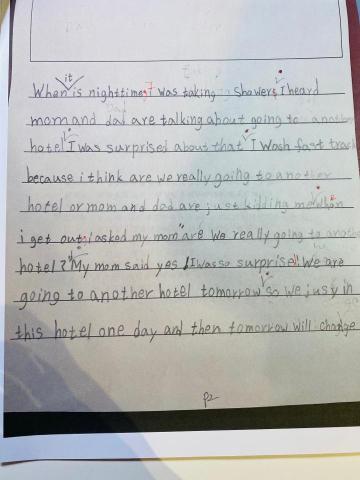 When it is nighttime, I was taking showers, I heard
mom and dad are talking about going to another
hotel I was surprised about that I wash fast
because i think are we really going to another
hotel or mom and dad are just kidding me when
i get out, i asked my mom "are we really going to another
hotel?" My mom said yes! I was so surprise! We are
going to another hotel tomorrow so we jusy in
this hotel one day and then tomorrow will change
P2